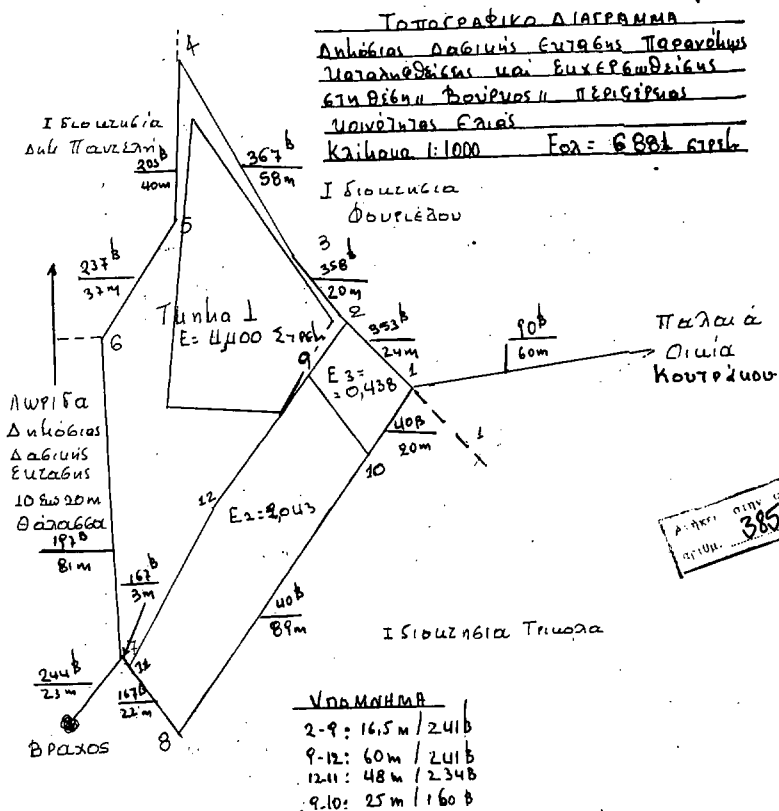 ΤΟΠΟΓΡΑΦΙΚΟ ΔΙΑΓΡΑΜΜΑ
Δημόσιας Δασικής Εκτασης Παρανόμως
Καταληφθείσης και Εκχερσωθείσης
στη θέση " Βούρκος " περιφέρειας
κοινότητας Ελιάς
Κλίμακα 1:1000 Εολ= 6881 στρεμ
4
Ιδιοκτησία
Δημ Παντελή
203β
40m
367β
58m
Ιδιοκτησία
Φουριέλου
5
3
358β
20m
237β
37m
2
Τμημα 1
Ε= 4,400 Στρεμ
353β
24m
90β
60m
Παλαιά
Οικία
Κουτράκου
6
9
Ε3=
=0,438
1
40β
20m
1
10
Λωρίδα
Δημόσιας
Δασικής
Εκτασης
10 εως 20m
Θάλασσα
12
Ε2=2,043
197β
81m
αριθμ. 385
167β
3m
40β
89m
Ιδιοκτησία Τρικολα
7
11
244β
23m
167β
22m
ΒΡΑΧΟΣ
8
ΥΠΟΜΝΗΜΑ
2-9: 16,5m / 241β
9-12: 60m / 241β
12-11: 48m / 234β
9-10: 25m / 160β